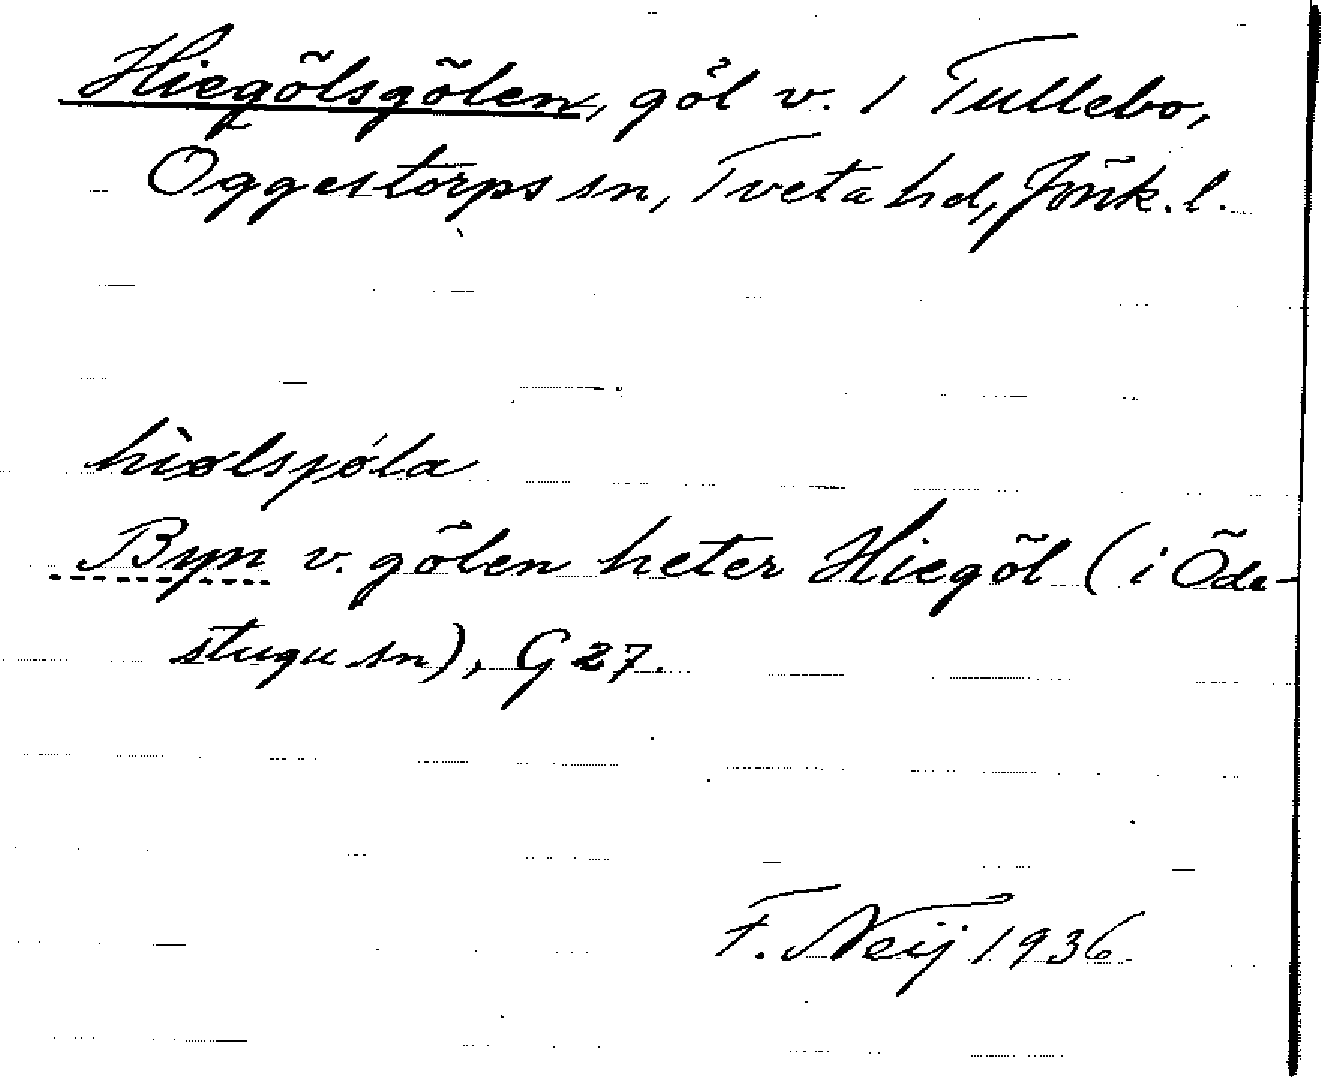 Hiegölsgölen, göl v. / Tullebo,
Öggestorps sn, Tveta hd, Jönk. l.
hìølspǿla
Byn v. gölen heter Hiegöl (i Öde-
stugu sn), G 27.
F. Neij 1936